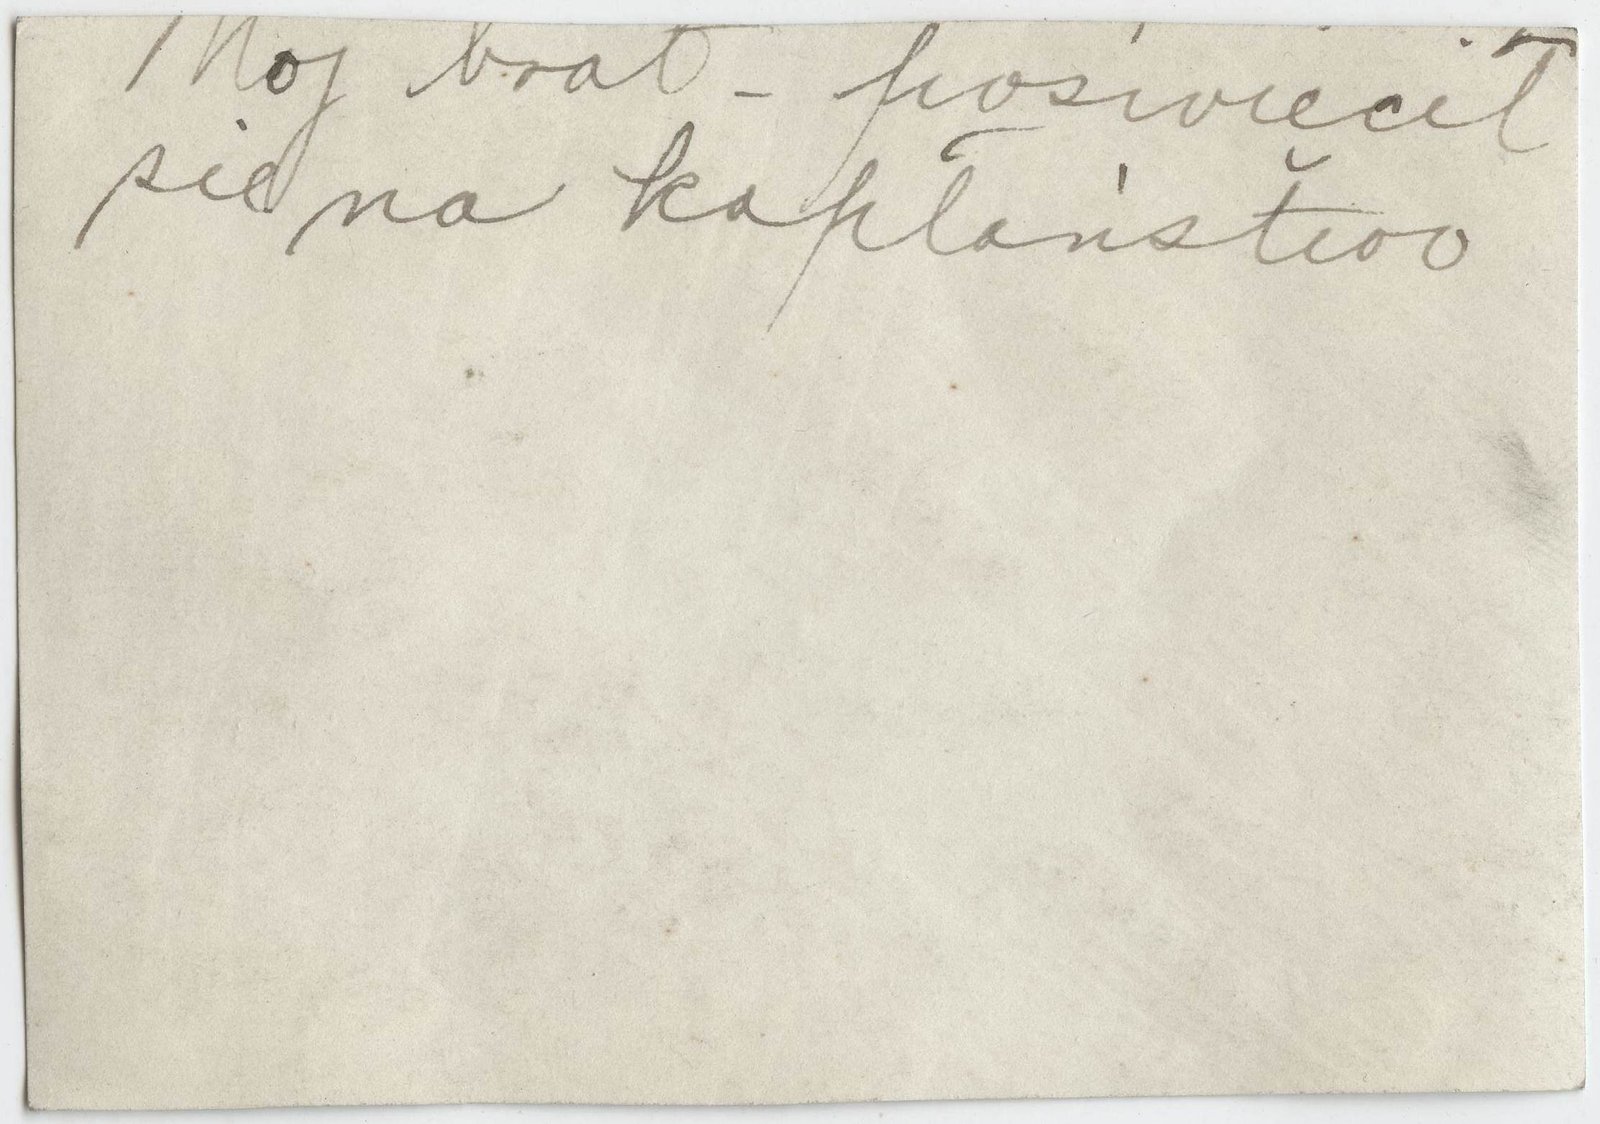 Moj brat - poświecił
sie na kapłaństwo